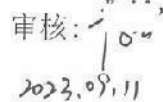 审核:
2023.09.11